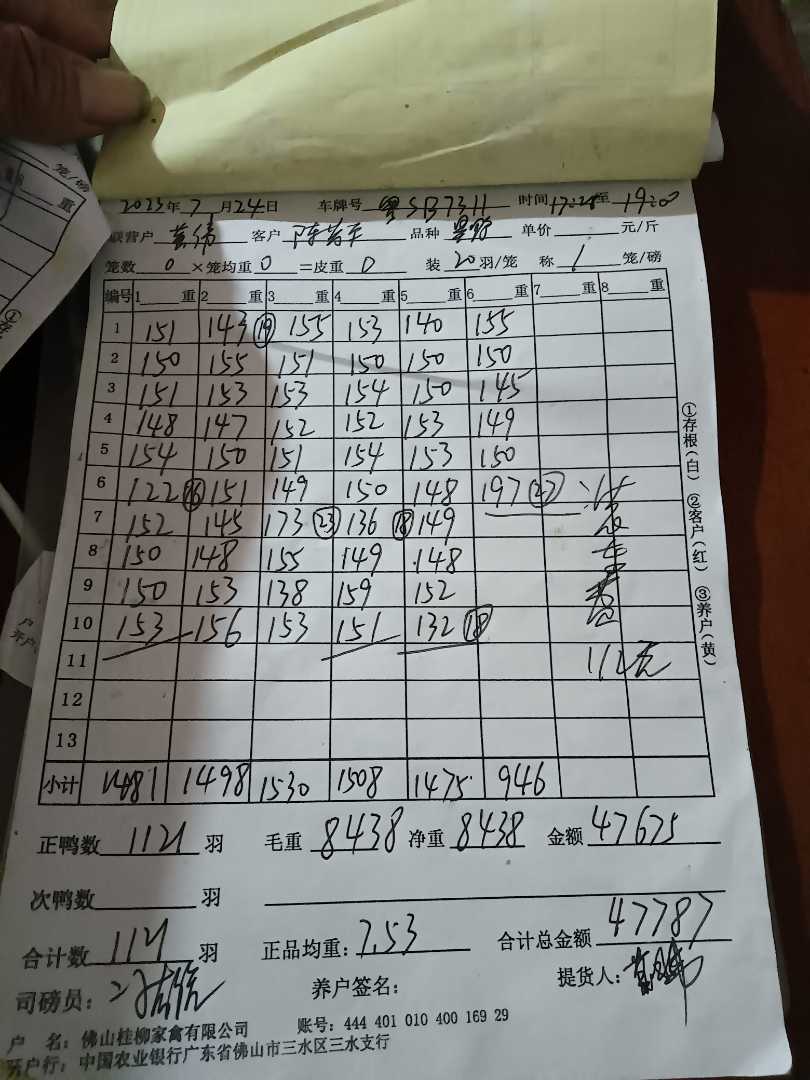 笼/磅
重
①存
户
养户
2023年7月24日 车牌号 粤SB7311 时间17:28至19:00
联营户 客户 品种 单价 元/斤
笼数 0 ×笼均重 0 =皮重 0 装 20 羽/笼 称 1 笼/磅
编号 1 重 2 重 3 重 4 重 5 重 6 重 7 重 8 重
1 151 143 ⑲ 155 153 140 155
2 150 155 151 150 150 150
3 151 153 153 154 150 145
4 148 147 152 152 153 149
5 154 150 151 154 153 150
6 122 ⑯ 151 149 150 148 197 ㉗
7 152 145 173 ㉓ 136 ⑱ 149
8 150 148 155 149 148
9 150 153 138 159 152
10 153 156 153 151 132 ⑱
11 112元
12
13
小计 1481 1498 1530 1508 1475 946
①存根(白) ②客户(红) ③养户(黄)
正鸭数 1121 羽 毛重 8438 净重 8438 金额 47675
次鸭数 羽
合计数 1121 羽 正品均重: 7.53 合计总金额 47787
司磅员: 养户签名: 提货人:
户 名: 佛山桂柳家禽有限公司 账号: 444 401 010 400 169 29
开户行: 中国农业银行广东省佛山市三水区三水支行